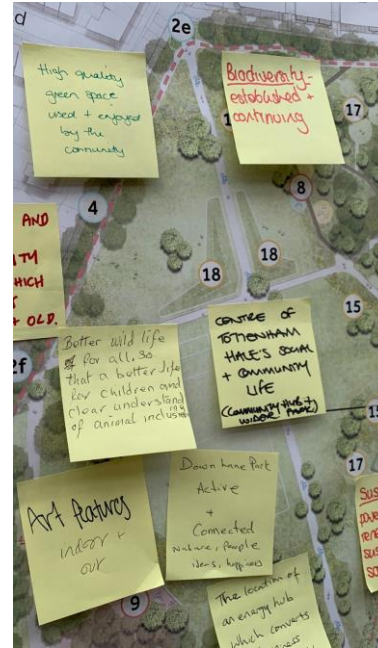 d
2e
High quality
green space
used + enjoyed
by the
community
Biodiversity-
established +
continuing
17
8
4
18
18
AND
ITY
HICH
+ OLD.
2f
15
Better wild life
for all. So
that a better life
for children and
clear understand
of animal
CENTRE OF
TOTTENHAM
HALE'S SOCIAL
+ COMMUNITY
LIFE
(COMMUNITY HUB +
WIDER PARK)
15
17
Down Lane Park
Active
+
Connected
Nature, People
ideas, happiness
Art features
indoor +
out
9
SUS
pow
rene
SUS
SO
The location of
an energy hub
which converts